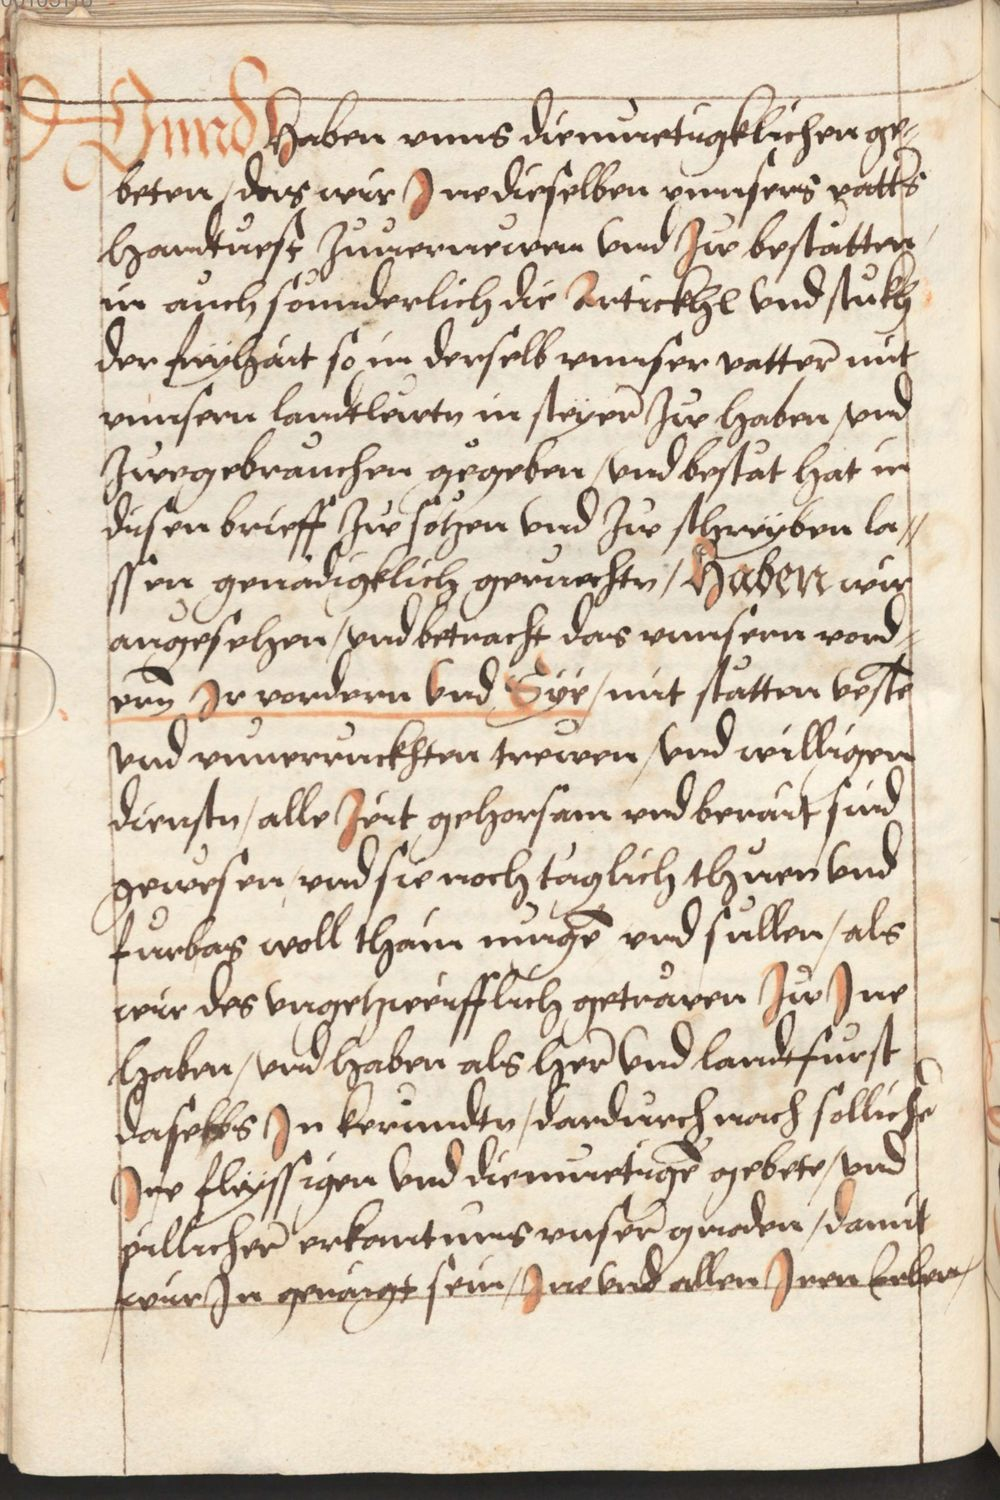 Vnnd Haben vnns diemuetigklichen ge-
beten / das wir Ine dieselben vnnsers vatt's
handtuesst Zuuernewen vnd Zw bestatten
in auch sounderlich die Artickhl vnd stukh
der freyhait so in derselb vnnser vatter mit
vnnsern landtlewtn in steyer Zw haben / vnd
Zwegebrauchen gegeben / vnd bestat hat in
disen brieff Zw sotzen vnd Zw schreyben la//
ssen genadigklich geruechtn / Haben wir
angesehen / vnd betracht das vnnsern vord-
ern Ir vordern vnd Sye / mit statten veste
vnd vnuerruckhten trewen / vnd willigen
dienstn / alle Zeit gehorsam vnd berait sind
gewesen / vnd sie noch taglich thuen vnd
furbas woll thain mugen vnd sullen / als
wir des vngetzweyfflich getrawen Zw Ine
haben / vnd haben als herr vnd landtsfurst
daselbs In kerundtn / dardurch nach solliche
Ire fleyssigen vnd diemuetige gebete / vnd
pillicher erkantnus vnser gnaden / damit
wir In genaigt sein / Ine vnd allen Iren Erben /